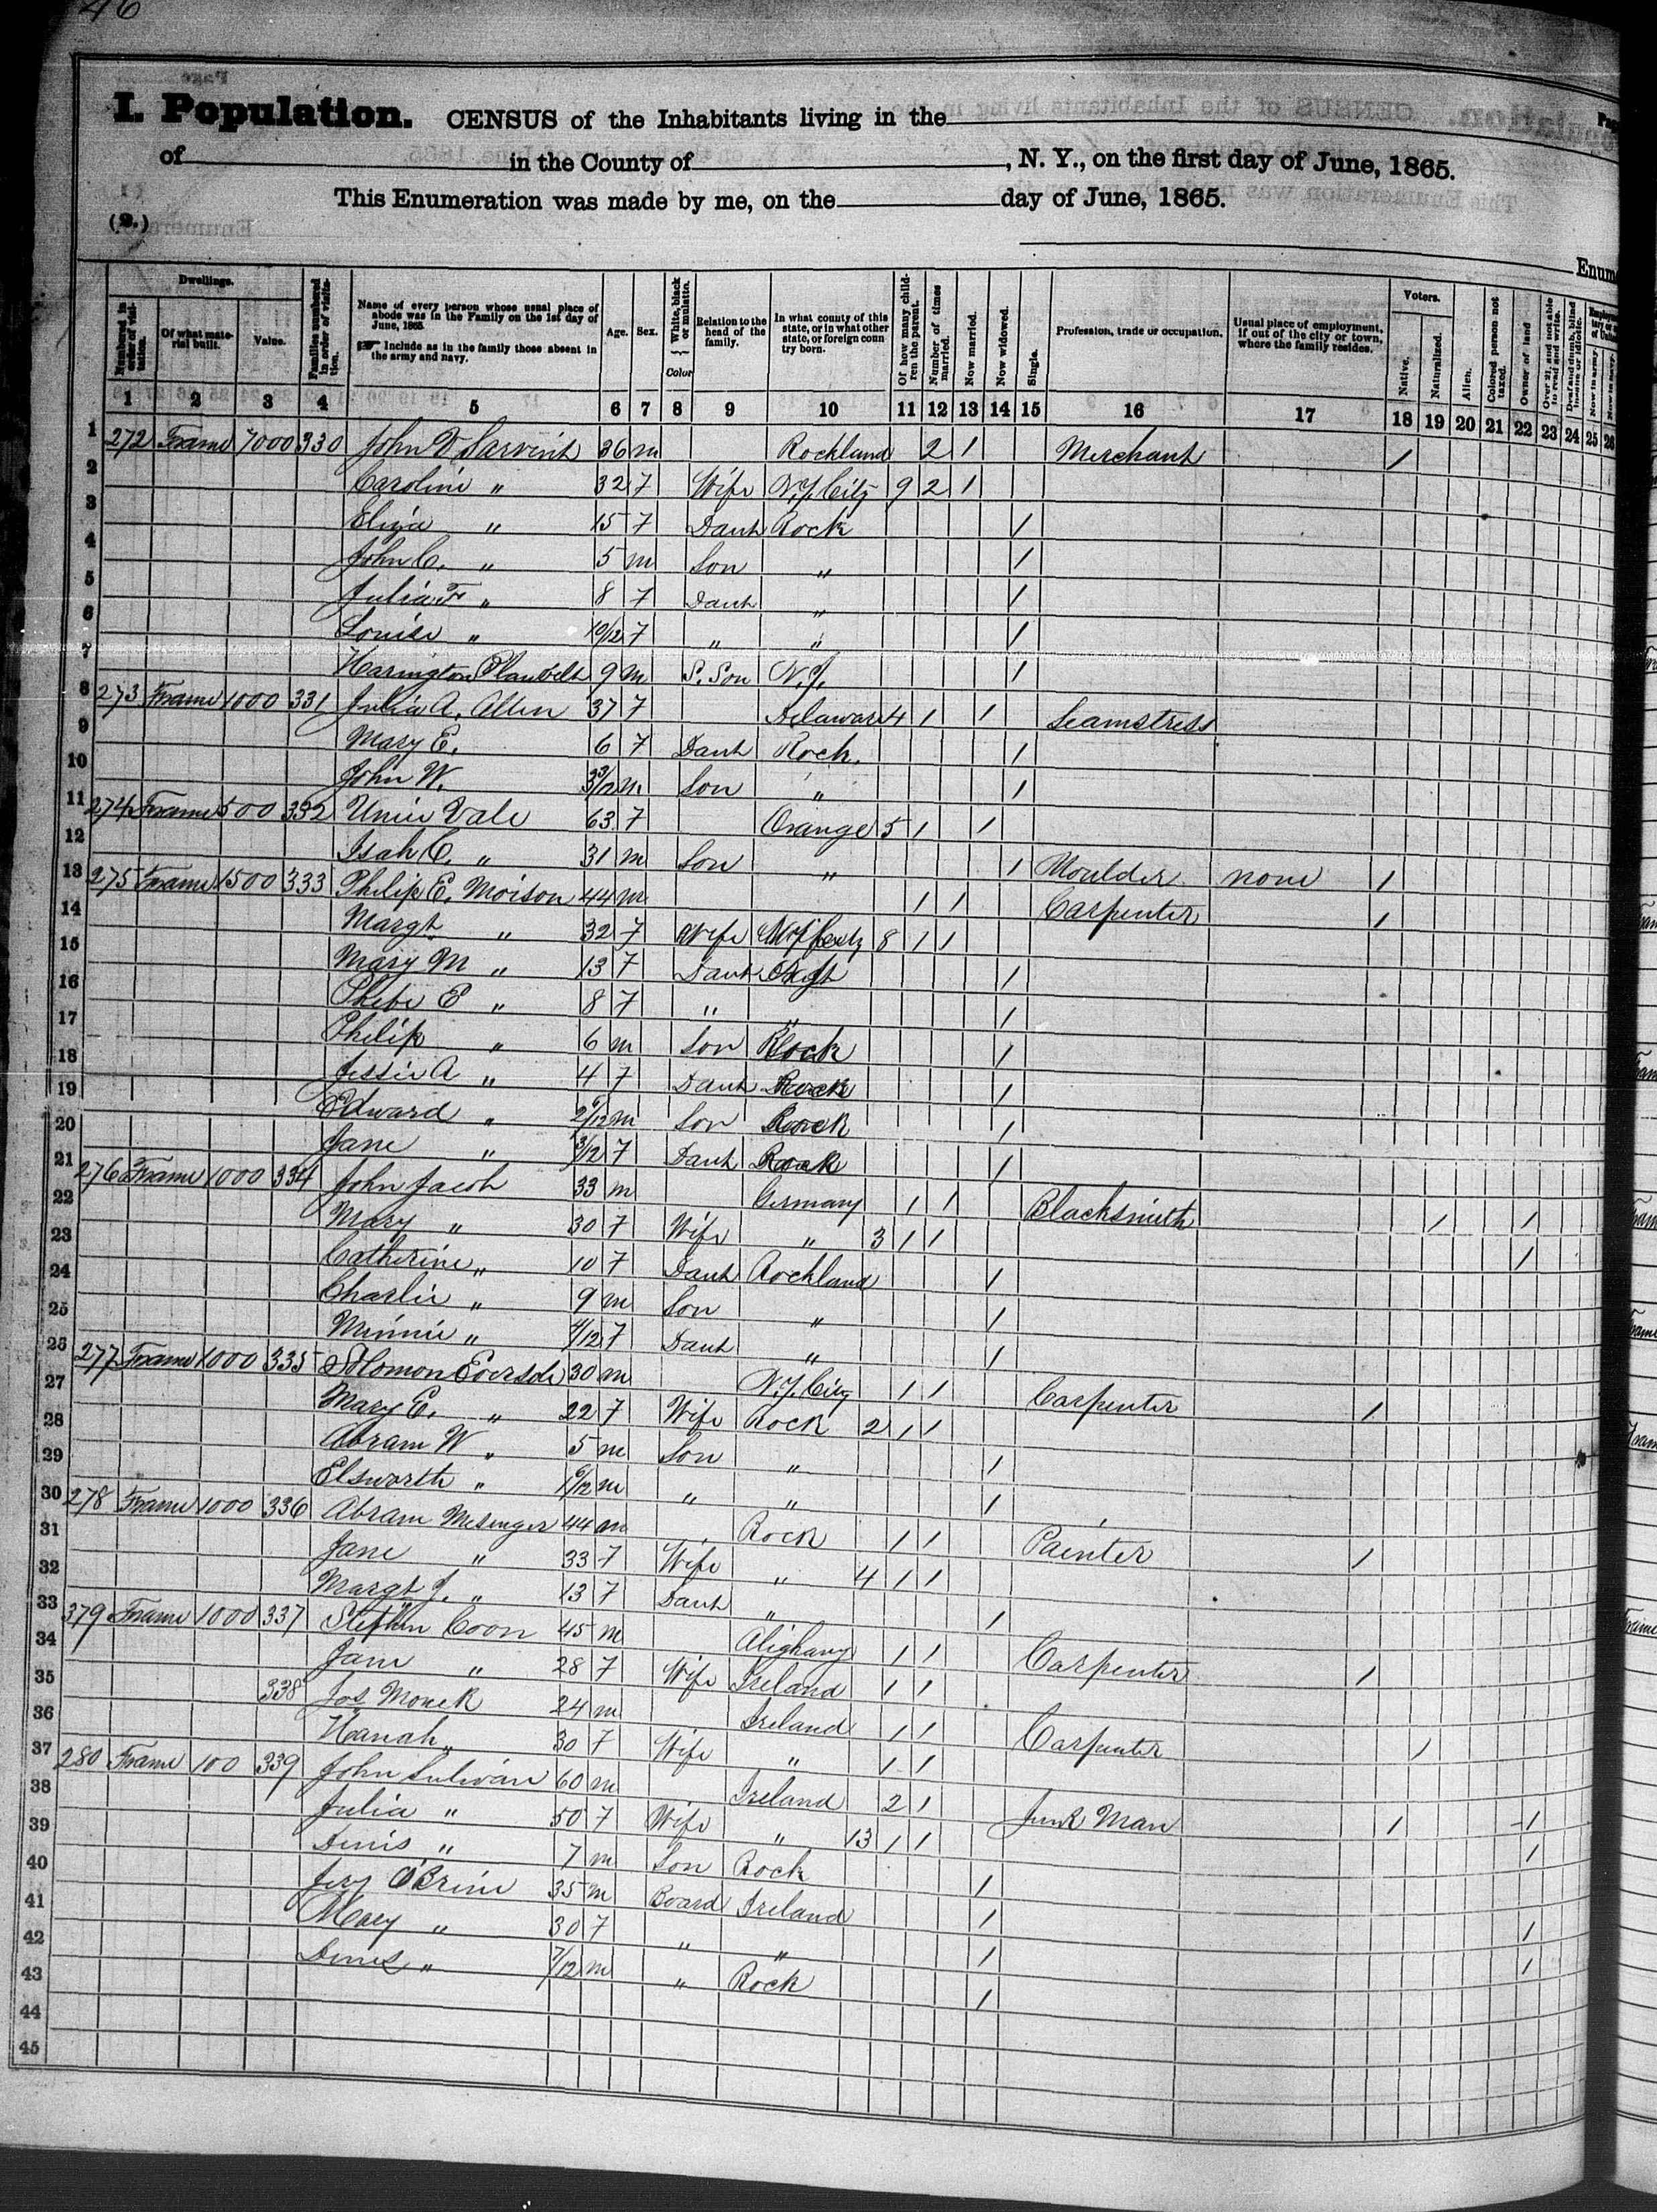 46
I. Population. CENSUS of the Inhabitants living in the
of in the County of , N. Y., on the first day of June, 1865.
This Enumeration was made by me, on the day of June, 1865.
(2.)
Enum
Dwellings. Voters.
Numbered in order of visitation. Of what material built. Value. Families numbered in order of visitation. Name of every person whose usual place of abode was in the Family on the 1st day of June, 1865. Include as in the family those absent in the army and navy. Age. Sex. White, black or mulatto. Color Relation to the head of the family. In what county of this state, or in what other state, or foreign country born. Of how many children the parent. Number of times married. Now married. Now widowed. Single. Profession, trade or occupation. Usual place of employment, if out of the city or town, where the family resides. Native. Naturalized. Alien. Colored person not taxed. Owner of land Over 21, and not able to read and write. Deaf and dumb, blind insane or idiotic. Now in army. Now in navy.
1 2 3 4 5 6 7 8 9 10 11 12 13 14 15 16 17 18 19 20 21 22 23 24 25 26
1 272 Frame 7000 330 John V Sarvint 36 m Rockland 2 1 Merchant 1
2 Caroline " 32 7 Wife N.Y. City 9 2 1
3 Eliza " 15 7 Dauh Rock 1
4 John C. " 5 m Son " 1
5 Julia F " 8 7 Dauh " 1
6 Louise " 10/12 7 " " 1
7 Harington Blauvelt 9 m S. Son N.J. 1
8 273 Frame 1000 331 Julia A. Allen 37 7 Delaware 4 1 1 Seamstress
9 Mary E. 6 7 Dauh Rock. 1
10 John W. m Son " 1
11 274 Frame 500 332 Unie Vale 63 7 Orange 5 1 1
12 Isah C. " 31 m Son " 1 Moulder none 1
13 275 Frame 1500 333 Philip E. Moison 44 m 1 1 Carpenter 1
14 Margt " 32 7 Wife 8 1 1
15 Mary M " 13 7 Dauh 1
16 Phebe E " 8 7 " " 1
17 Philip " 6 m Son Rock 1
18 Jessie A " 4 7 Dauh Rock 1
19 Edward " 2 6/12 m Son Rock 1
20 Jane " 3/12 7 Dauh Rock 1
21 276 Frame 1000 334 John Jacob 33 m Germany 1 1 Blacksmith 1 1
22 Mary " 30 7 Wife " 3 1 1 1
23 Catherine " 10 7 Dauh Rockland 1
24 Charlie " 9 m Son " 1
25 Minnie " 4/12 7 Dauh " 1
26 277 Frame 1000 335 Solomon Eversole 30 m N.Y. City 1 1 Carpenter 1
27 Mary E. " 22 7 Wife Rock 2 1 1
28 Abram W " 5 m Son " 1
29 Elsworth " 1 6/12 m " " 1
30 278 Frame 1000 336 Abram Mesenger 44 m Rock 1 1 Painter 1
31 Jane " 33 7 Wife " 4 1 1
32 Margt J. " 13 7 Dauh " 1
33 379 Frame 1000 337 Stephen Coon 45 m Alighany 1 1 Carpenter 1
34 Jane " 28 7 Wife Ireland 1 1
35 338 Jos Monck 24 m Ireland 1 1 Carpenter 1
36 Hanah " 30 7 Wife " 1 1
37 280 Frame 100 339 John Sulivan 60 m Ireland 2 1 Junk Man 1 1
38 Julia " 50 7 Wife " 13 1 1 1
39 Dinis " 7 m Son Rock 1
40 Jery O'Brine 35 m Board Ireland 1 1
41 Mary " 30 7 " " 1 1
42 Dines " 7/12 m " Rock 1
43
44
45